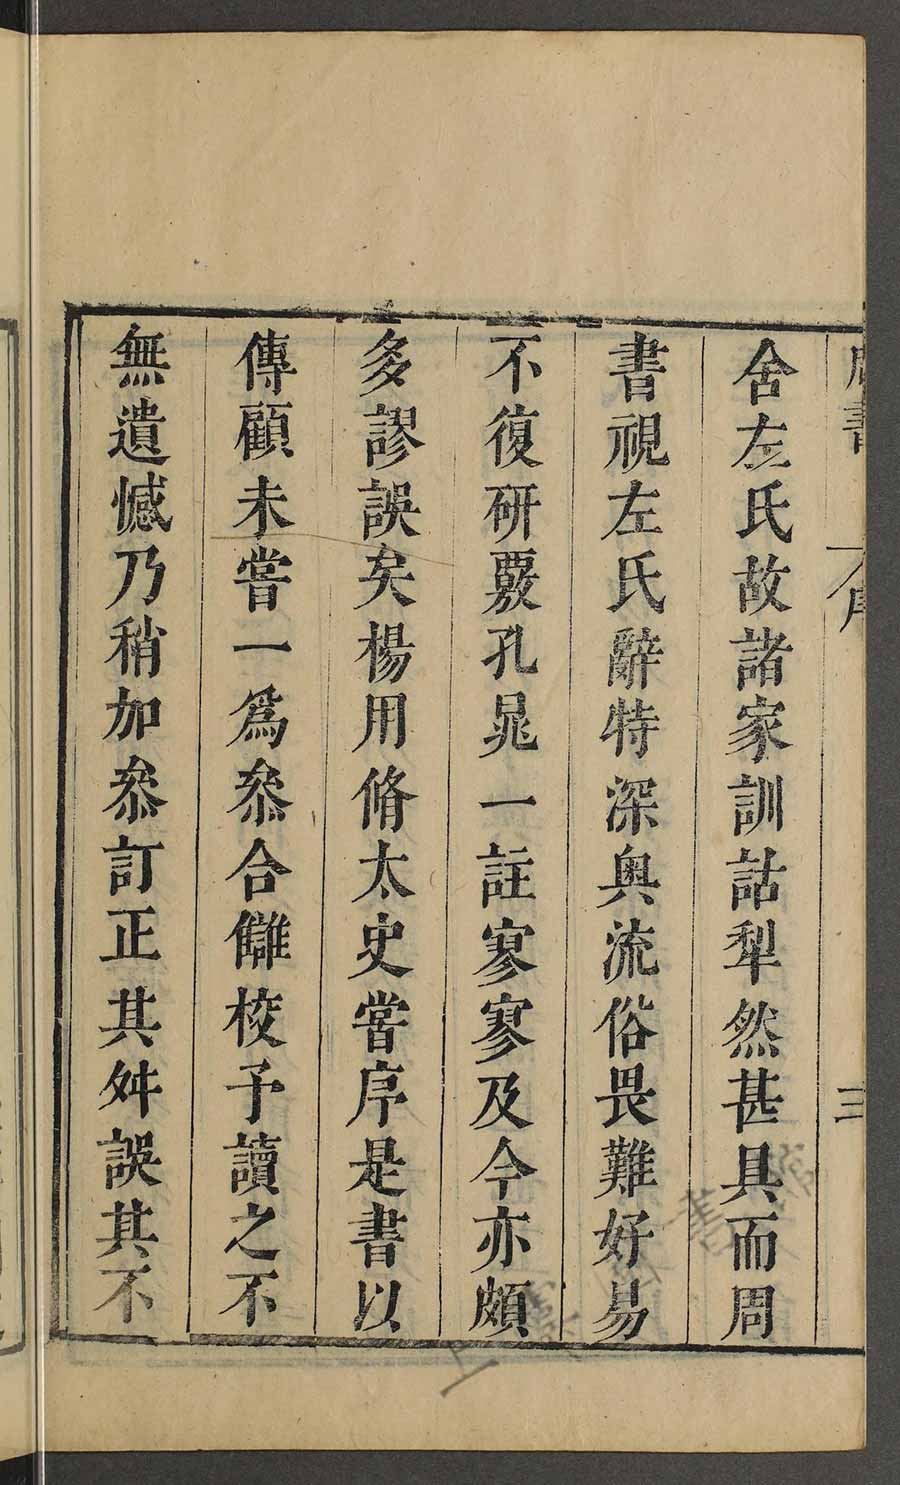 舍左氏故諸家訓詁犁然甚具而周
書視左氏辭特深奥流俗畏難好易
不復研覈孔晁一註寥寥及今亦頗
多謬誤矣楊用脩太史嘗序是書以
傳顧未嘗一爲叅合讎校予讀之不
無遺憾乃稍加叅訂正其舛誤其不